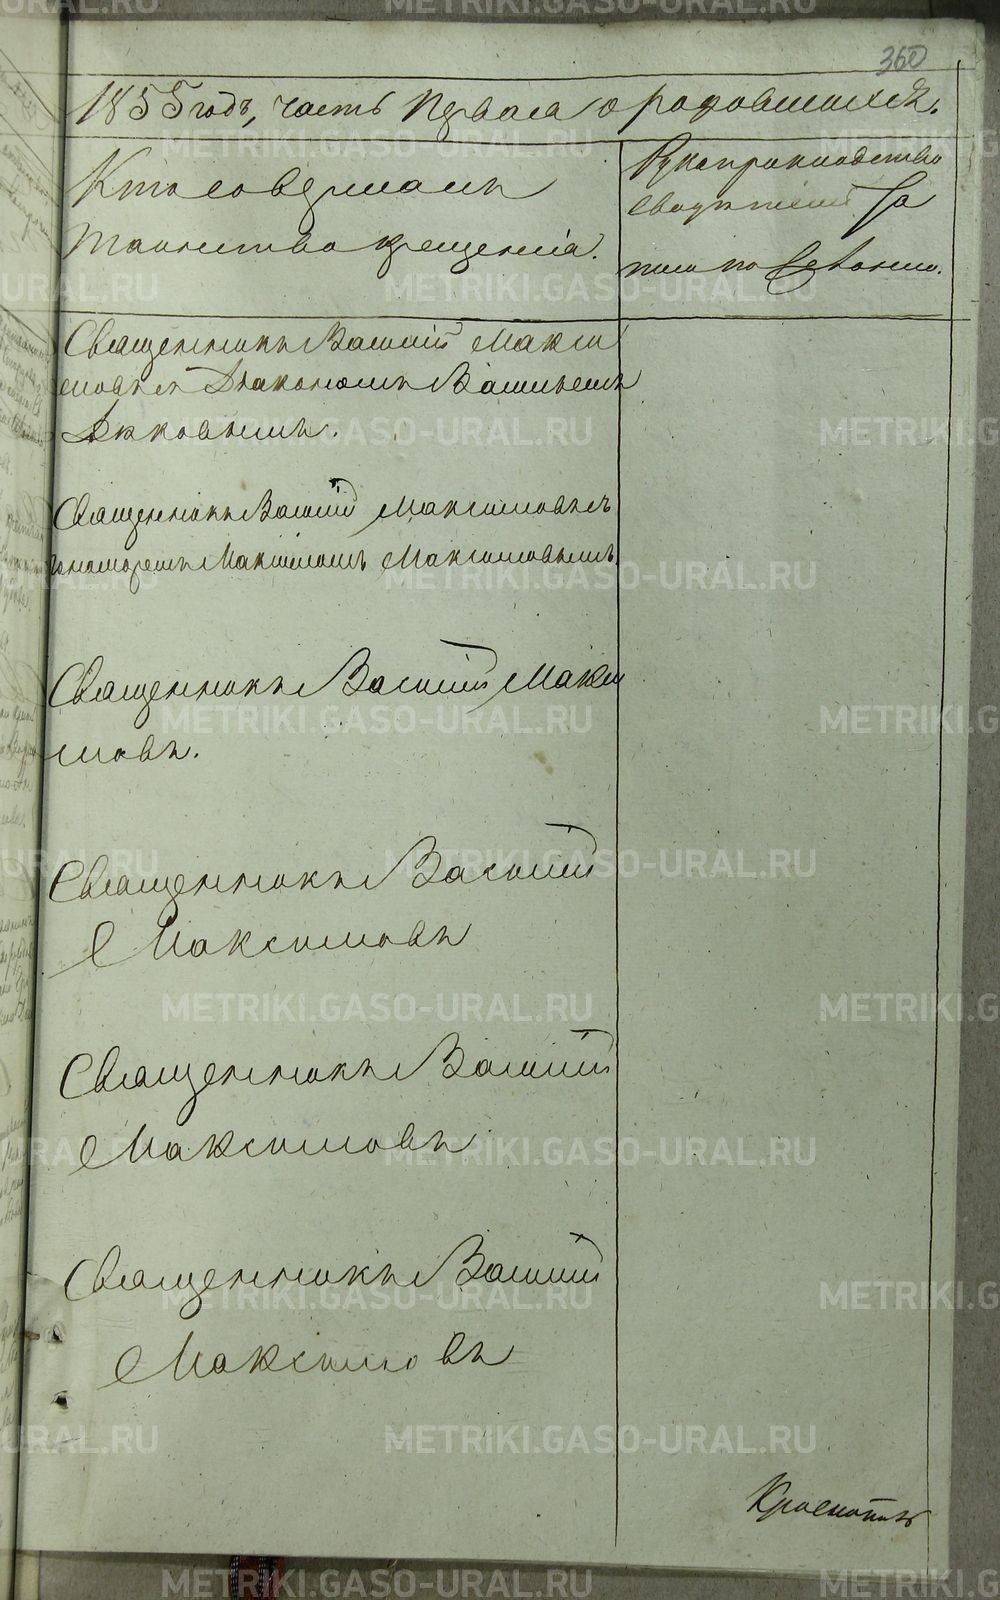 360
1855 годъ, часть Первая о родившихся.
Кто совершалъ
таинство крещенія.
Рукоприкладство
свидѣтелей За
писи по Желанію.
Священникъ Василій Макси
мовъ съ Діакономъ Васильемъ
Священникъ Василій Максимовъ съ
пономаремъ Максимомъ Максимовымъ.
Священникъ Василій Макси
мовъ.
Священникъ Василій
Максимовъ
Священникъ Василій
Максимовъ
Священникъ Василій
Максимовъ
METRIKI.GASO-URAL.RU